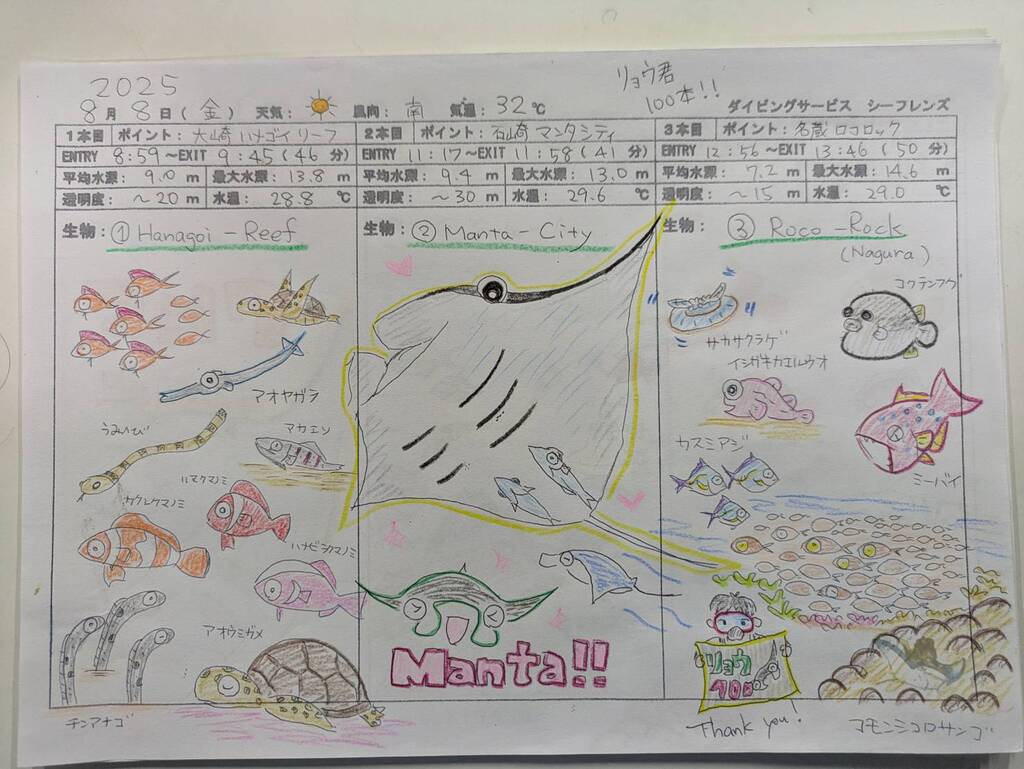 2025
リョウ君
100本!!
8月8日(金) 天気: 風向: 南 気温: 32℃ ダイビングサービス シーフレンズ
1本目 ポイント: 大崎 ハナゴイリーフ
ENTRY 8:59~EXIT 9:45(46 分)
平均水深: 9.0 m 最大水深: 13.8 m
透明度: ~20 m 水温: 28.8 ℃
生物: ① Hanagoi-Reef
アオヤガラ
うみへび
アカエソ
ハマクマノミ
カクレクマノミ
ハナビラクマノミ
アオウミガメ
チンアナゴ
2本目 ポイント: 石崎 マンタシティ
ENTRY 11:17~EXIT 11:58(41 分)
平均水深: 9.4 m 最大水深: 13.0 m
透明度: ~30 m 水温: 29.6 ℃
生物: ② Manta-City
Manta!!
3本目 ポイント: 名蔵 ロコロック
ENTRY 12:56~EXIT 13:46(50 分)
平均水深: 7.2 m 最大水深: 14.6 m
透明度: ~15 m 水温: 29.0 ℃
生物: ③ Roco-Rock
(Nagura)
コクテンフグ
サカサクラゲ
イシガキカエルウオ
カスミアジ
ミーバイ
リョウ
100
Thank you!
コモンシコロサンゴ